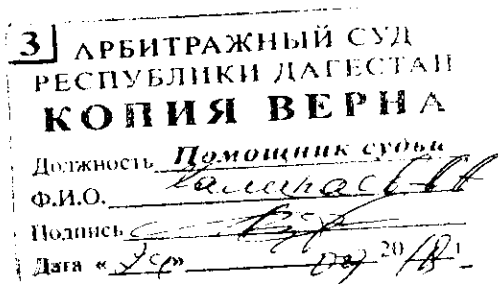 3 АРБИТРАЖНЫЙ СУД
РЕСПУБЛИКИ ДАГЕСТАН
КОПИЯ ВЕРНА
Должность Помощник судьи
Ф.И.О.
Подпись
Дата « » 20 18 г.